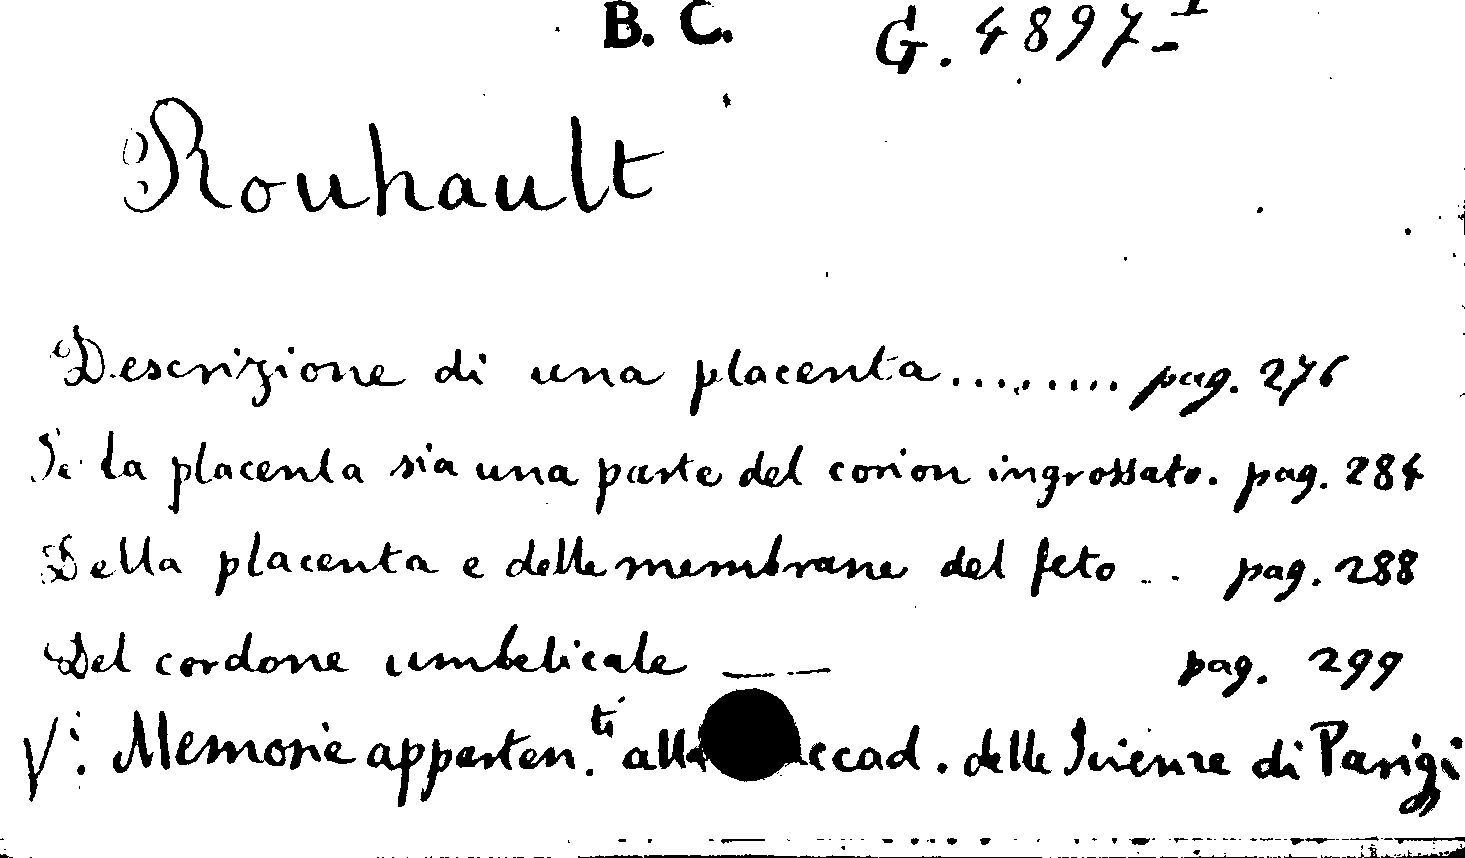 B. C. G. 4897-I
Rouhault
Descrizione di una placenta......... pag. 276
Se la placenta sia una parte del corion ingrossato. pag. 284
Della placenta e delle membrane del feto .. pag. 288
Del cordone umbelicale __ __ pag. 299
V: Memorie apparten.ti alla Accad. delle Scienze di Parigi